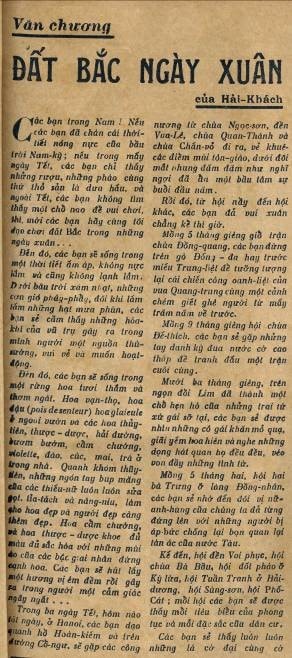 Văn chương
ĐẤT BẮC NGÀY XUÂN
của Hải-Khách
Các bạn trong Nam! Nếu
các bạn đã chán cái thời-
tiết nóng nực của bầu
trời Nam-kỳ; nếu trong mấy
ngày Tết, các bạn chỉ thấy
những rượu, những pháo cùng
thứ thổ sản là dưa hấu, và
ngoài Tết, các bạn không tìm
thấy một chỗ nào để vui chơi,
thì, mời các bạn hãy cùng tôi
dạo chơi đất Bắc trong những
ngày xuân...
Đến đó, các bạn sẽ sống trong
một thời tiết ấm áp, không nực
lắm và cũng không lạnh lắm.
Dưới bầu trời xám nhạt, những
cơn gió phây-phẩy, đôi khi lấm
tấm những hạt mưa phùn, các
bạn sẽ cảm thấy những hòa-
khí của vũ trụ gây ra trong
mình người một nguồn thu-
sướng, vui vẻ và muốn hoạt-
động.
Đến đó, các bạn sẽ sống trong
một rừng hoa tươi thắm và
thơm ngát. Hoa vạn-thọ, hoa
đậu (pois de senteur) hoa glaieule
ở ngoài vườn và các hoa thủy-
tiên, thược-dược, hải đường,
bươm bướm, cẩm chướng,
violette, đào, cúc, mai, trà ở
trong nhà. Quanh khóm thủy-
tiên, những ngón tay búp măng
của các thiếu-nữ luôn luôn sửa
gọt, tỉa-tách và nâng-niu, làm
cho hoa đẹp và người đẹp càng
thêm đẹp. Hoa cẩm chướng,
và hoa thược-dược khoe đủ
màu đủ sắc hòa với những mùi
áo của các bọt gái nhàn đứng
cạnh hoa. Các bạn sẽ hút lấy
một hương vị êm đềm rồi gây
ra trong người một cảm giác
ngây ngất...
Trong ba ngày Tết, hôm nào
tốt ngày, ở Hanoi, các bạn dạo
quanh hồ Hoàn-kiếm và trên
đường Cổ-ngư, sẽ gặp các công
nương từ chùa Ngọc-sơn, đền
Vua-Lê, chùa Quan-Thánh và
chùa Chấn-võ đi ra, vẻ khuê-
các điểm mùi tôn-giáo, dưới đôi
mắt nhung đăm đăm như nghĩ
ngợi đã ẩn một bầu tâm sự
buổi đầu năm.
Rồi đó, từ hội này đến hội
khác, các bạn đã vui xuân
chẳng kể thì giờ.
Mồng 5 tháng giêng giỗ trận
chùa Đồng-quang, các bạn đứng
trên gò Đống-đa hay trước
miếu Trung-liệt để tưởng tượng
lại cái chiến công oanh-liệt của
vua Quang-trung cùng một cảnh
chém giết ghê người từ mấy
trăm năm về trước.
Mồng 9 tháng giêng hội chùa
Đế-thích, các bạn sẽ gặp những
tay danh kỳ đua nước cờ cao
thấp để tranh đấu một trận
cuối cùng.
Mười ba tháng giêng, trên
ngọn đồi Lim đã thành một
chỗ hẹn hò của những trai tứ
xứ gái tơ lại, các bạn sẽ được
nhìn những cô gái khăn mỏ quạ,
giải yếm hoa hiên và nghe những
dọng hát quan họ đều đều, véo-
von đầy những tình tứ.
Mồng 5 tháng hai, hội hai
bà Trưng ở làng Đồng-nhân,
các bạn sẽ nhớ đến đôi vị nữ-
anh-hùng của chúng ta đã từng
đứng lên với những người bị
áp-bức chống lại bọn quan lại
tàn ác của nước Tàu.
Kế đến, hội đền Voi phục, hội
chùa Bà Đậu, hội đốt pháo ở
Kỳ lừa, hội Tuần Tranh ở Hải-
dương, hội Sùng-sơn, hội Phố-
Cát; mỗi hội các bạn sẽ được
thấy mỗi tiêu biểu của phong
tục và mỗi đặc sắc của dân cư.
Các bạn sẽ thấy luôn luôn
những lá cờ đại cùng cờ